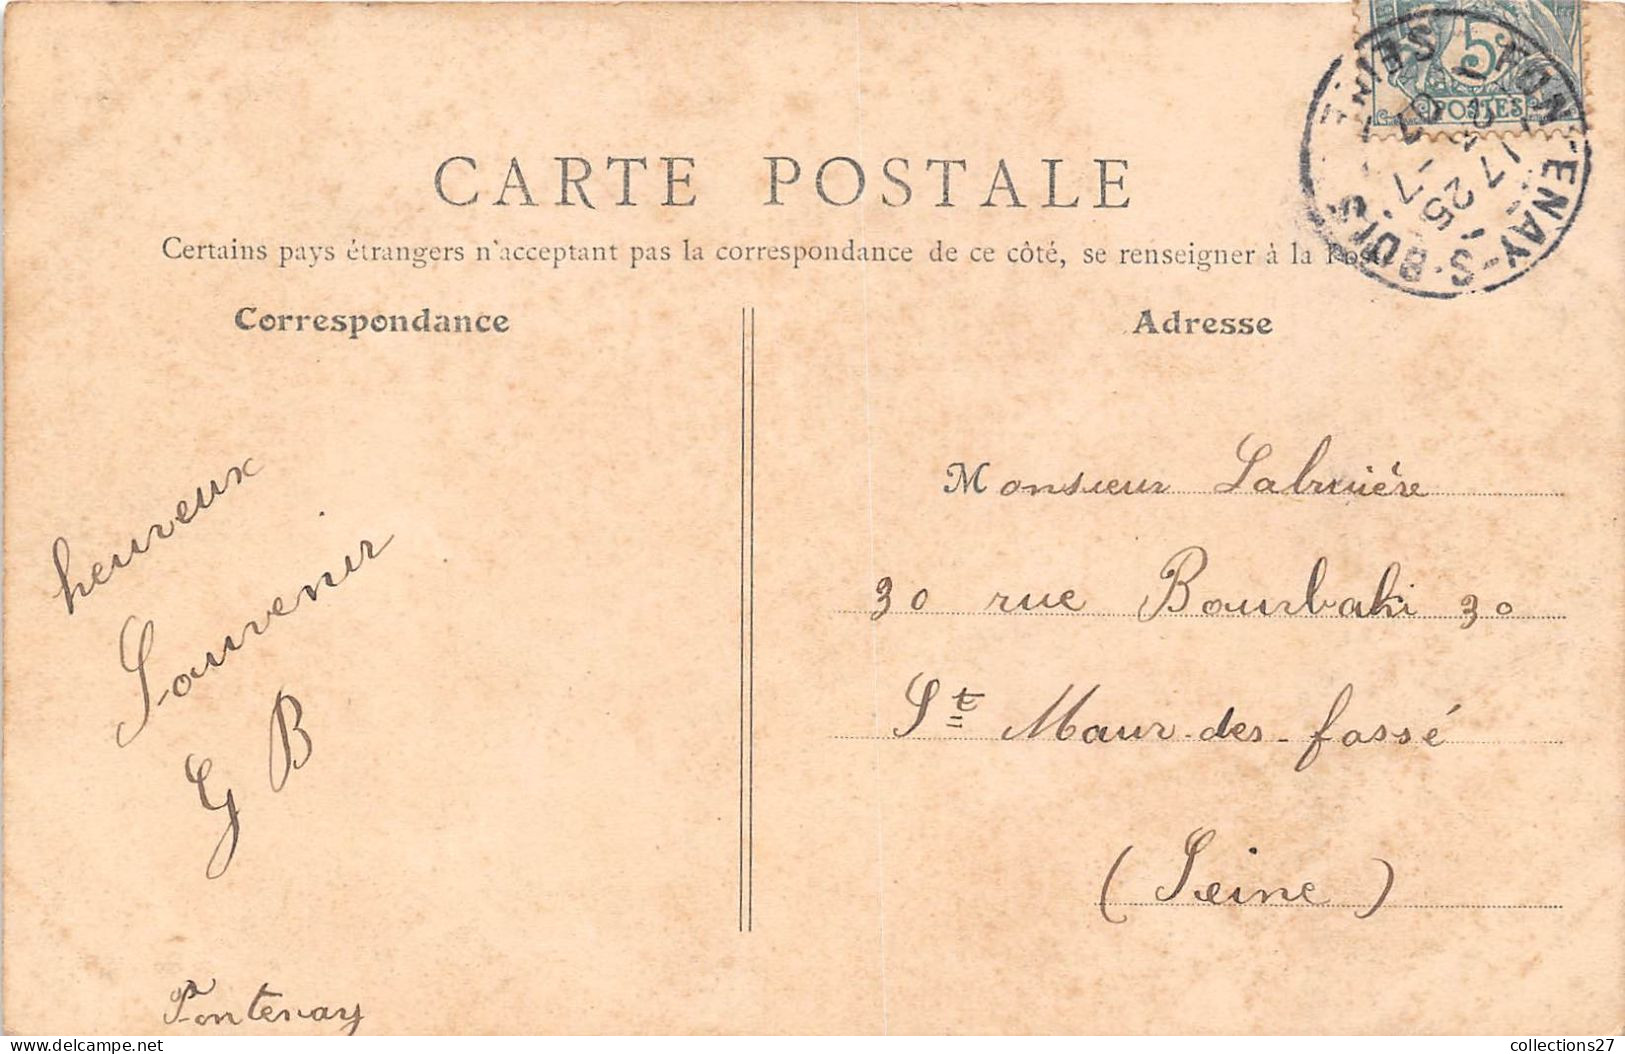 CARTE POSTALE
Certains pays étrangers n'acceptant pas la correspondance de ce côté, se renseigner à la Poste
Correspondance
Adresse
5c
POSTES
FONTENAY-S-BOIS
SEINE
17 25
heureux
Souvenir
G B
Fontenay
Monsieur Labruière
30 rue Bourbaki 30
St Maur-des-fossé
(Seine)
delcampe.net
collections27